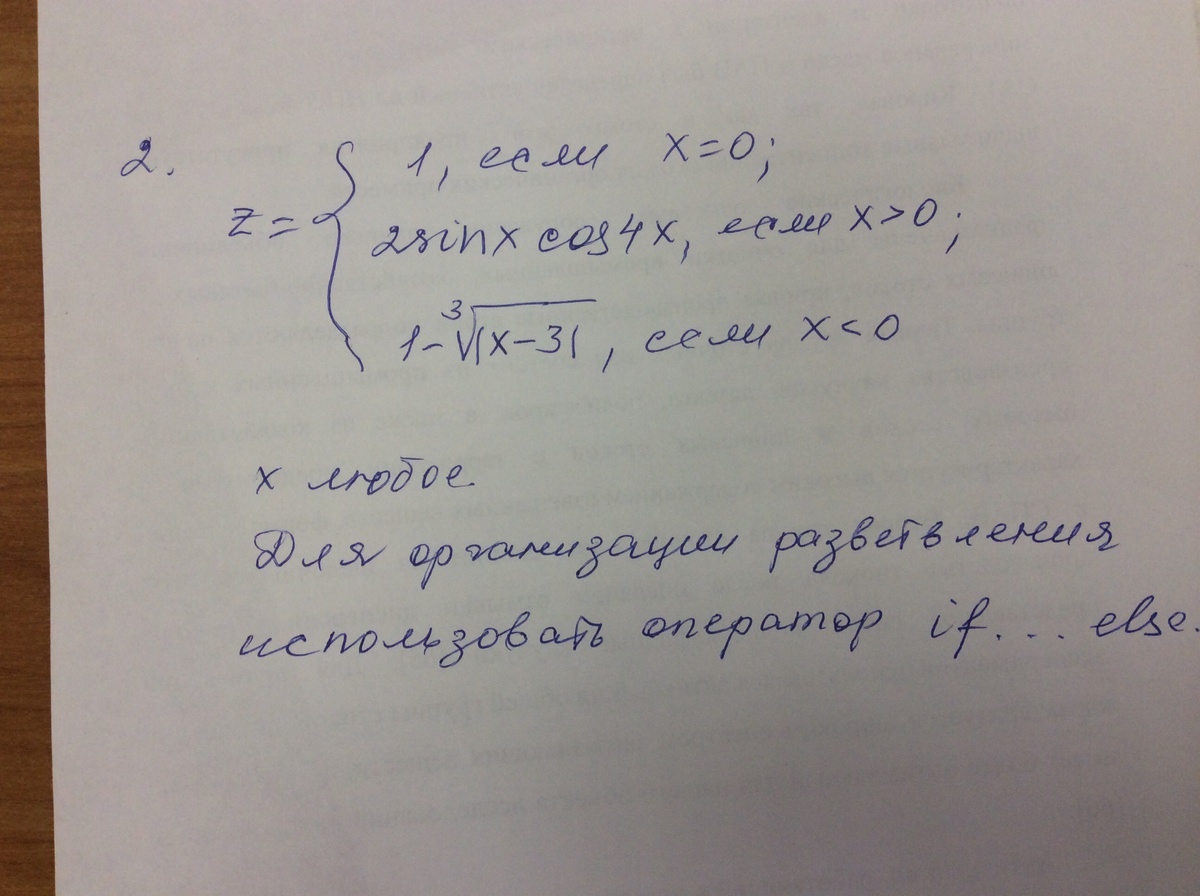 2.
z = { 1, если x=0;
2sinx cos4x, если x>0;
1-∛|x-3|, если x<0
x любое.
Для организации разветвления
использовать оператор if... else.